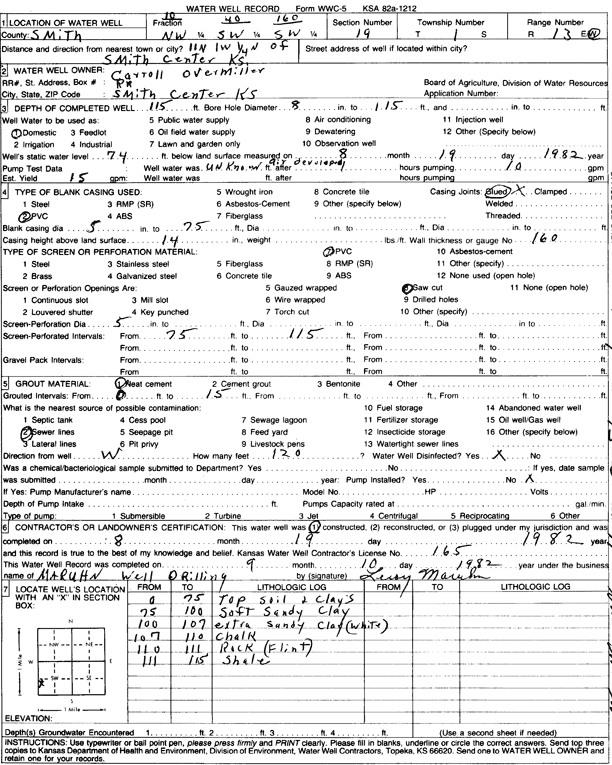 WATER WELL RECORD Form WWC-5 KSA 82a-1212
10 40 160
1 LOCATION OF WATER WELL Fraction Section Number Township Number Range Number
County: Smith NW ¼ SW ¼ SW ¼ 19 T 1 S R 13 E/W
Distance and direction from nearest town or city? 11N 1W ¼N of Street address of well if located within city?
Smith Center Ks
2 WATER WELL OWNER: Carroll Overmiller
RR#, St. Address, Box # : RR Board of Agriculture, Division of Water Resources
City, State, ZIP Code : Smith Center KS Application Number:
3 DEPTH OF COMPLETED WELL 115 ft. Bore Hole Diameter 8 in. to 115 ft., and in. to ft.
Well Water to be used as: 5 Public water supply 8 Air conditioning 11 Injection well
1 Domestic 3 Feedlot 6 Oil field water supply 9 Dewatering 12 Other (Specify below)
2 Irrigation 4 Industrial 7 Lawn and garden only 10 Observation well
Well's static water level 74 ft. below land surface measured on 8 month 19 day 1982 year
Pump Test Data Well water was unknown ft. after air developed hours pumping 10 gpm
Est. Yield 15 gpm Well water was ft. after hours pumping gpm
4 TYPE OF BLANK CASING USED: 5 Wrought iron 8 Concrete tile Casing Joints: Glued X Clamped
1 Steel 3 RMP (SR) 6 Asbestos-Cement 9 Other (specify below) Welded
2 PVC 4 ABS 7 Fiberglass Threaded
Blank casing dia 5 in. to 75 ft., Dia in. to ft., Dia in. to ft.
Casing height above land surface 14 in., weight lbs./ft. Wall thickness or gauge No 160
TYPE OF SCREEN OR PERFORATION MATERIAL: 7 PVC 10 Asbestos-cement
1 Steel 3 Stainless steel 5 Fiberglass 8 RMP (SR) 11 Other (specify)
2 Brass 4 Galvanized steel 6 Concrete tile 9 ABS 12 None used (open hole)
Screen or Perforation Openings Are: 5 Gauzed wrapped 8 Saw cut 11 None (open hole)
1 Continuous slot 3 Mill slot 6 Wire wrapped 9 Drilled holes
2 Louvered shutter 4 Key punched 7 Torch cut 10 Other (specify)
Screen-Perforation Dia 5 in. to ft., Dia in. to ft., Dia in. to ft.
Screen-Perforated Intervals: From 75 ft. to 115 ft., From ft. to ft.
From ft. to ft., From ft. to ft.
Gravel Pack Intervals: From ft. to ft., From ft. to ft.
From ft. to ft., From ft. to ft.
5 GROUT MATERIAL: 1 Neat cement 2 Cement grout 3 Bentonite 4 Other
Grouted Intervals: From 0 ft. to 15 ft., From ft. to ft., From ft. to ft.
What is the nearest source of possible contamination: 10 Fuel storage 14 Abandoned water well
1 Septic tank 4 Cess pool 7 Sewage lagoon 11 Fertilizer storage 15 Oil well/Gas well
2 Sewer lines 5 Seepage pit 8 Feed yard 12 Insecticide storage 16 Other (specify below)
3 Lateral lines 6 Pit privy 9 Livestock pens 13 Watertight sewer lines
Direction from well W How many feet 120 ? Water Well Disinfected? Yes X No
Was a chemical/bacteriological sample submitted to Department? Yes No ; If yes, date sample
was submitted month day year: Pump Installed? Yes No X
If Yes: Pump Manufacturer's name Model No. HP Volts
Depth of Pump Intake ft. Pumps Capacity rated at gal./min.
Type of pump: 1 Submersible 2 Turbine 3 Jet 4 Centrifugal 5 Reciprocating 6 Other
6 CONTRACTOR'S OR LANDOWNER'S CERTIFICATION: This water well was (1) constructed, (2) reconstructed, or (3) plugged under my jurisdiction and was
completed on 8 month 19 day 1982 year
and this record is true to the best of my knowledge and belief. Kansas Water Well Contractor's License No. 165
This Water Well Record was completed on 9 month 10 day 1982 year under the business
name of MARUHN Well Drilling by (signature) Leroy Maruhn
7 LOCATE WELL'S LOCATION WITH AN "X" IN SECTION BOX:
FROM TO LITHOLOGIC LOG FROM TO LITHOLOGIC LOG
0 75 Top Soil & Clay's
75 100 Soft Sandy Clay
100 107 extra Sandy Clay (white)
107 110 Chalk
110 111 Rock (Flint)
111 115 Shale
N
NW NE
W E
SW SE
X
S
1 Mile
1 Mile
ELEVATION:
Depth(s) Groundwater Encountered 1. ft. 2. ft. 3. ft. 4. ft. (Use a second sheet if needed)
INSTRUCTIONS: Use typewriter or ball point pen, please press firmly and PRINT clearly. Please fill in blanks, underline or circle the correct answers. Send top three
copies to Kansas Department of Health and Environment, Division of Environment, Water Well Contractors, Topeka, KS 66620. Send one to WATER WELL OWNER and
retain one for your records.